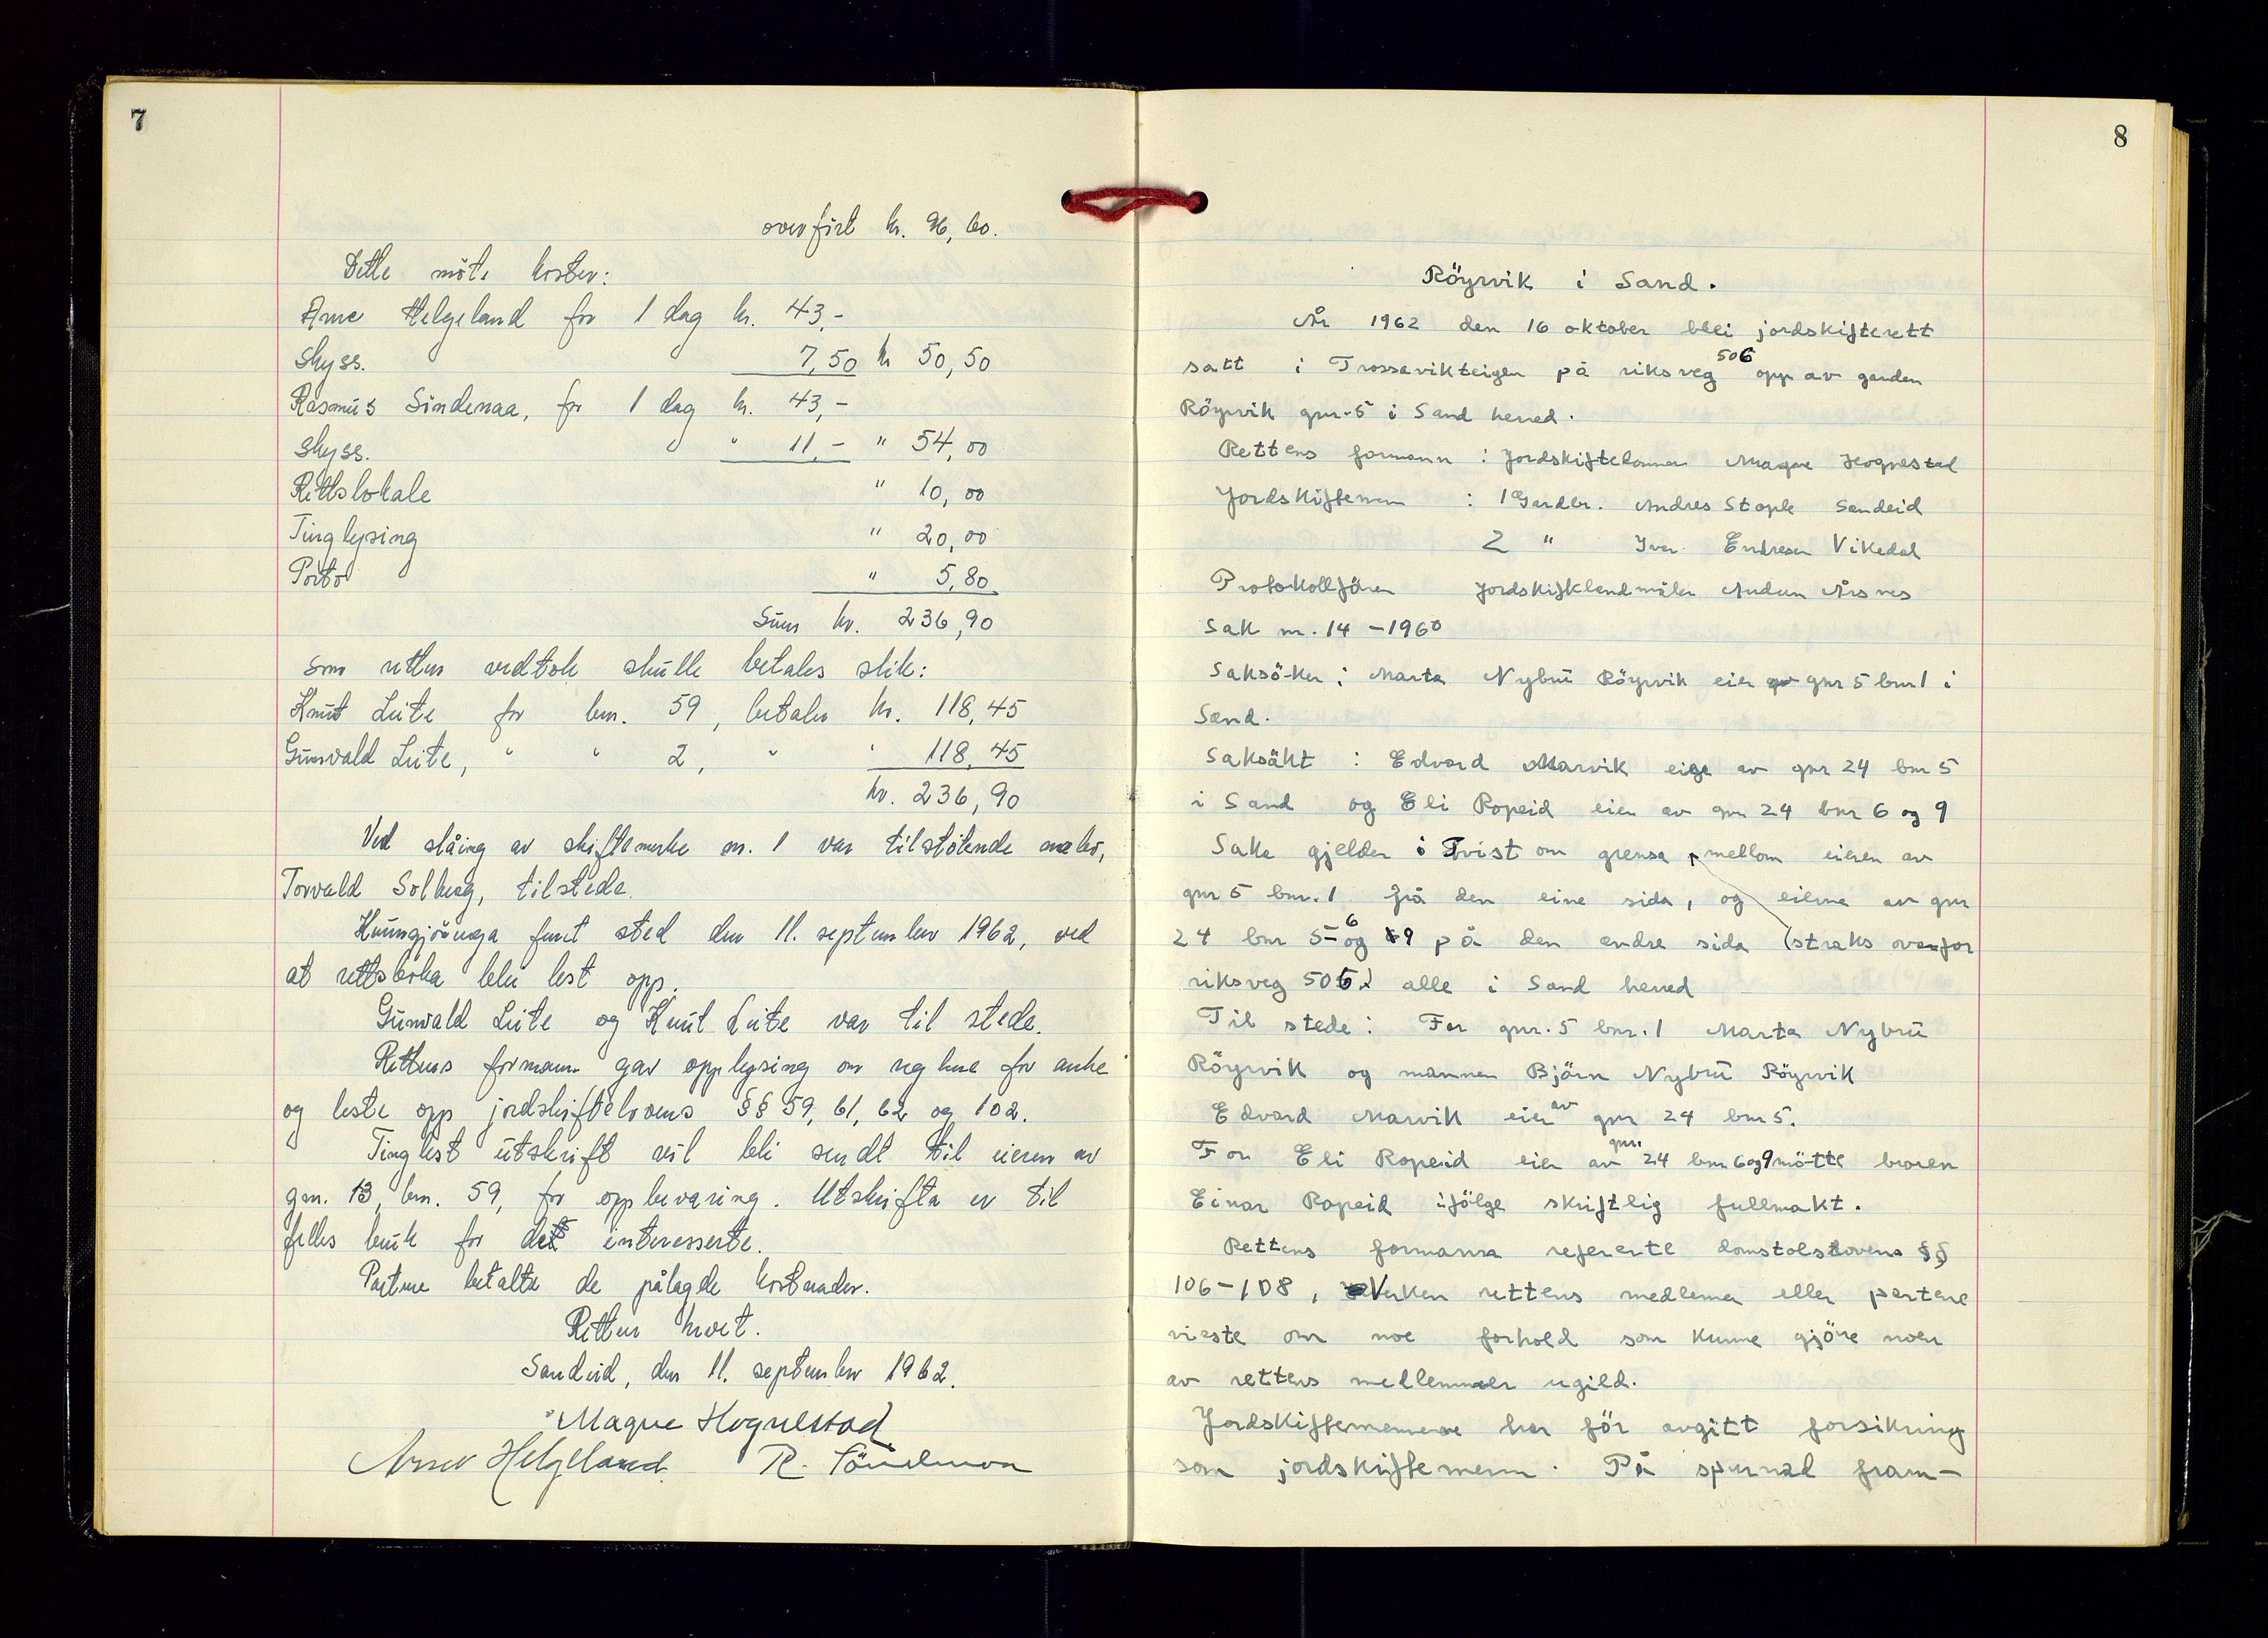 7
overfört kr. 96,60.
Dette möte koster:
Arne Helgeland for 1 dag kr. 43,-
Skyss. 7,50 kr 50,50
Rasmus Söndenaa, for 1 dag kr. 43,-
Skyss. " 11,- " 54,00
Rettslokale " 10,00
Tinglysing " 20,00
Porto " 5,80
Sum kr. 236,90
som retten vedtok skulle betales slik:
Knut Leite for bnr. 59, betaler kr. 118,45
Gunvald Leite, " " 2, " " 118,45
kr. 236,90
Ved slåing av skiftemerke nr. 1 var tilstötende nabo,
Torvald Solberg, tilstede.
Kunngjöringa fant sted den 11. september 1962, ved
at rettsboka blei lest opp.
Gunvald Leite og Knut Leite var til stede.
Rettens formann gav opplysing om reglene for anke
og leste opp jordskiftelovens §§ 59, 61, 62 og 102.
Tinglest utskrift vil bli sendt til eieren av
gnr. 13, bnr. 59, for oppbevaring. Utskrifta er til
felles bruk for de interesserte.
Partene betalte de pålagde kostnader.
Retten hevet.
Sandeid, den 11. september 1962.
Magne Hognestad
Arne Helgeland. R. Söndenaa
8
Röyrvik i Sand.
År 1962 den 16 oktober blei jordskifterett
satt i Trossavikteigen på riksveg 506 opp av garden
Röyrvik gnr. 5 i Sand herred.
Rettens formann : Jordskiftedommer Magne Hognestad
Jordskiftemenn : 1 Gardbr. Andres Stople Sandeid
2 " Iver Endresen Vikedal
Protokollförer Jordskiftelandmåler Audun Årsnes
Sak nr. 14 - 1960
Saksöker : Marta Nybru Röyrvik eier av gnr 5 bnr 1 i
Sand.
Saksökt : Edvard Marvik eier av gnr 24 bnr 5
i Sand og Eli Ropeid eier av gnr 24 bnr 6 og 9
Saka gjelder : Tvist om grensa mellom eieren av
gnr 5 bnr. 1 på den eine sida, og eierne av gnr
24 bnr 5-6 og 9 på den andre sida (straks ovanfor
riksveg 506) alle i Sand herred
Til stede : For gnr. 5 bnr. 1 Marta Nybru
Röyrvik og mannen Björn Nybru Röyrvik
Edvard Marvik eier av gnr 24 bnr 5.
For Eli Ropeid eier av gnr. 24 bnr 6 og 9 mötte broren
Einar Ropeid ifölge skriftlig fullmakt.
Rettens formann refererte domstolslovens §§
106-108, Verken rettens medlemer eller partene
visste om noe forhold som kunne gjöre noen
av rettens medlemmer ugild.
Jordskiftemennene har för avgitt forsikring
som jordskiftemenn. På spurnad fram-